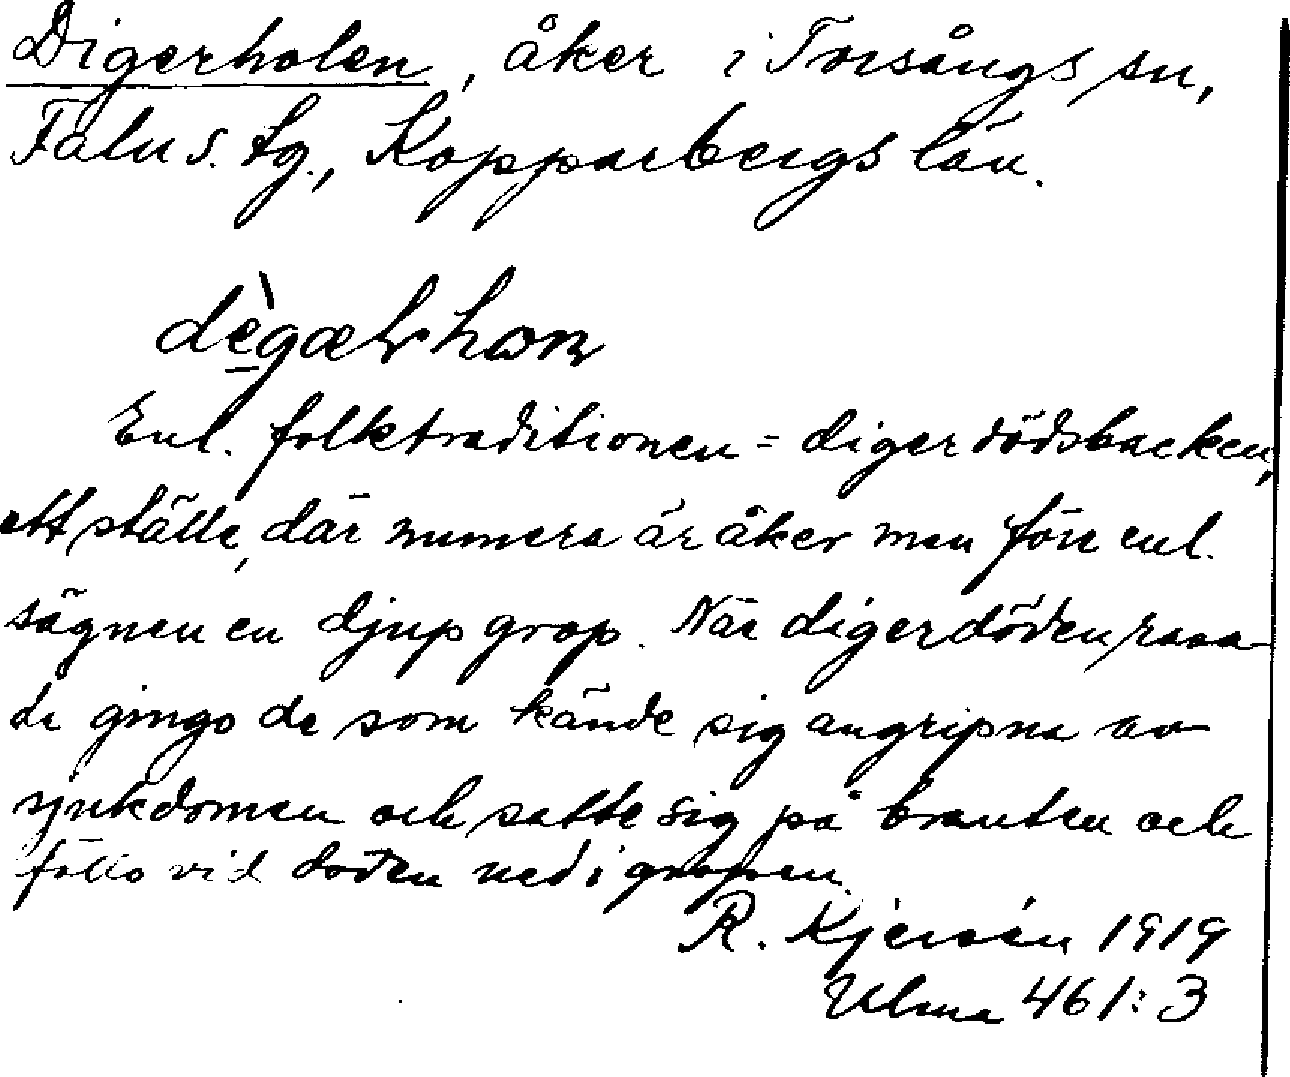 Digerholen, åker i Torsångs sn,
Falu s. tg., Kopparbergs län.
Enl. folktraditionen = digerdödsbacken,
ett ställe, där numera är åker men förr enl.
sägnen en djup grop. När digerdöden rasa-
de gingo de som kände sig angripna av
sjukdomen och satte sig på branten och
föllo vid döden ned i gropen.
R. Kjersén 1919
Ulma 461:3